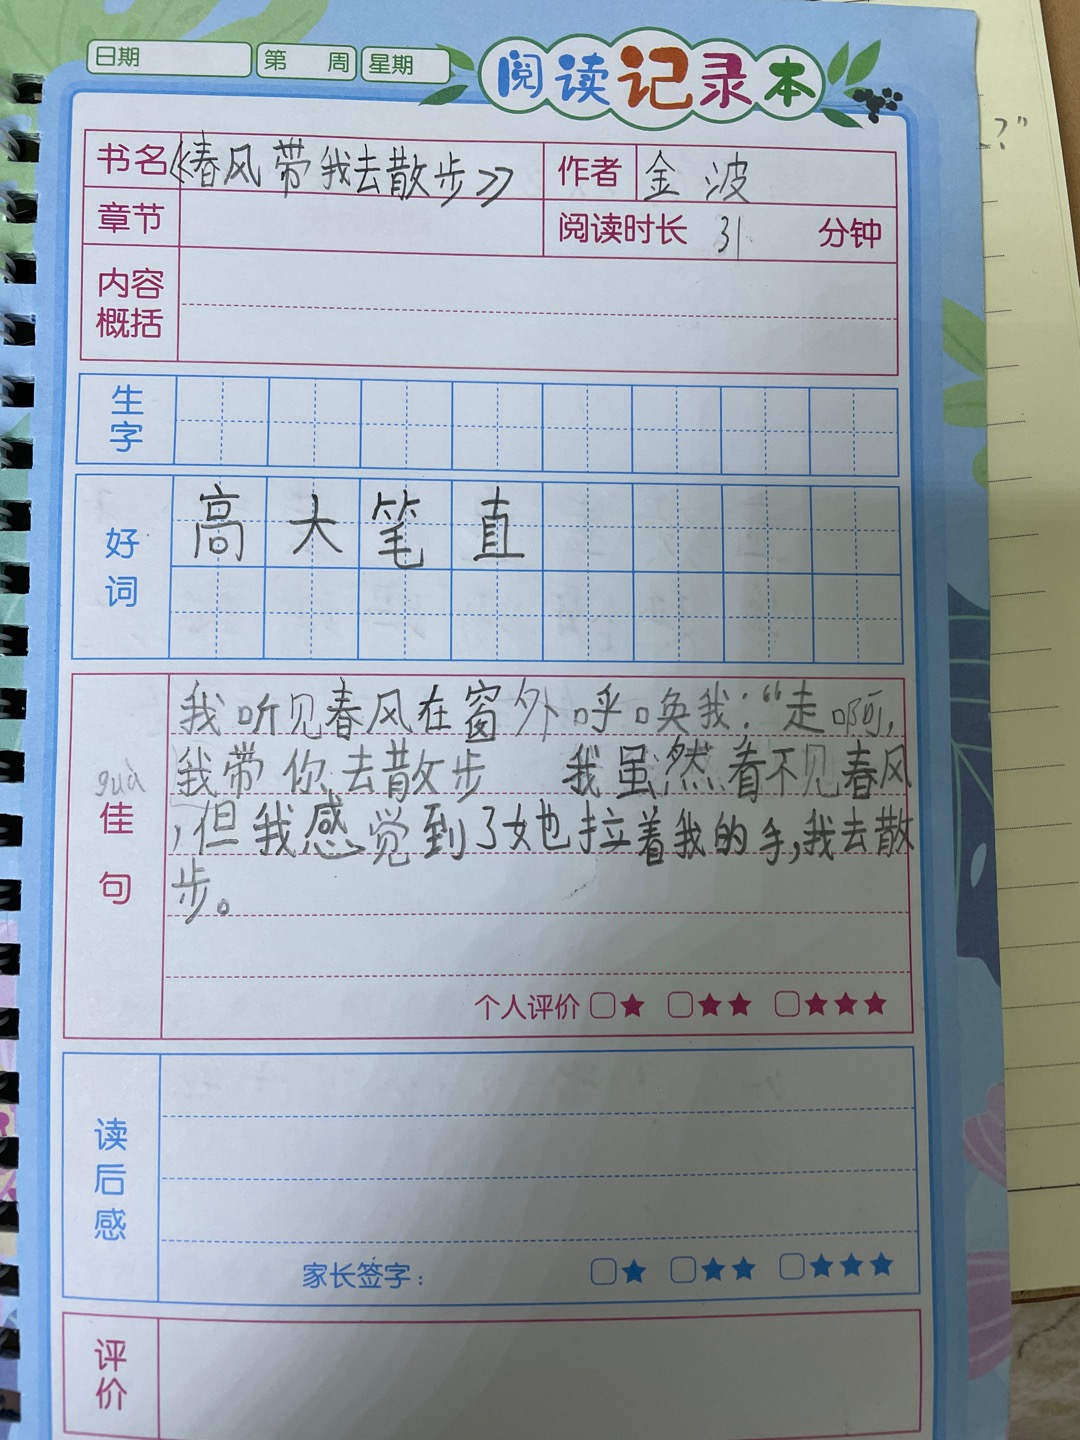 日期 第 周 星期 阅读记录本
书名 《春风带我去散步》 作者 金波
章节 阅读时长 31 分钟
内容
概括
生
字
好
词
高大笔直
我听见春风在窗外呼唤我:“走啊,
我带你去散步 我虽然看不见春风
,但我感觉到了她拉着我的手,我去散
步。
guà
佳
句
个人评价 ★ ★★ ★★★
读
后
感
家长签字: ★ ★★ ★★★
评
价
?”